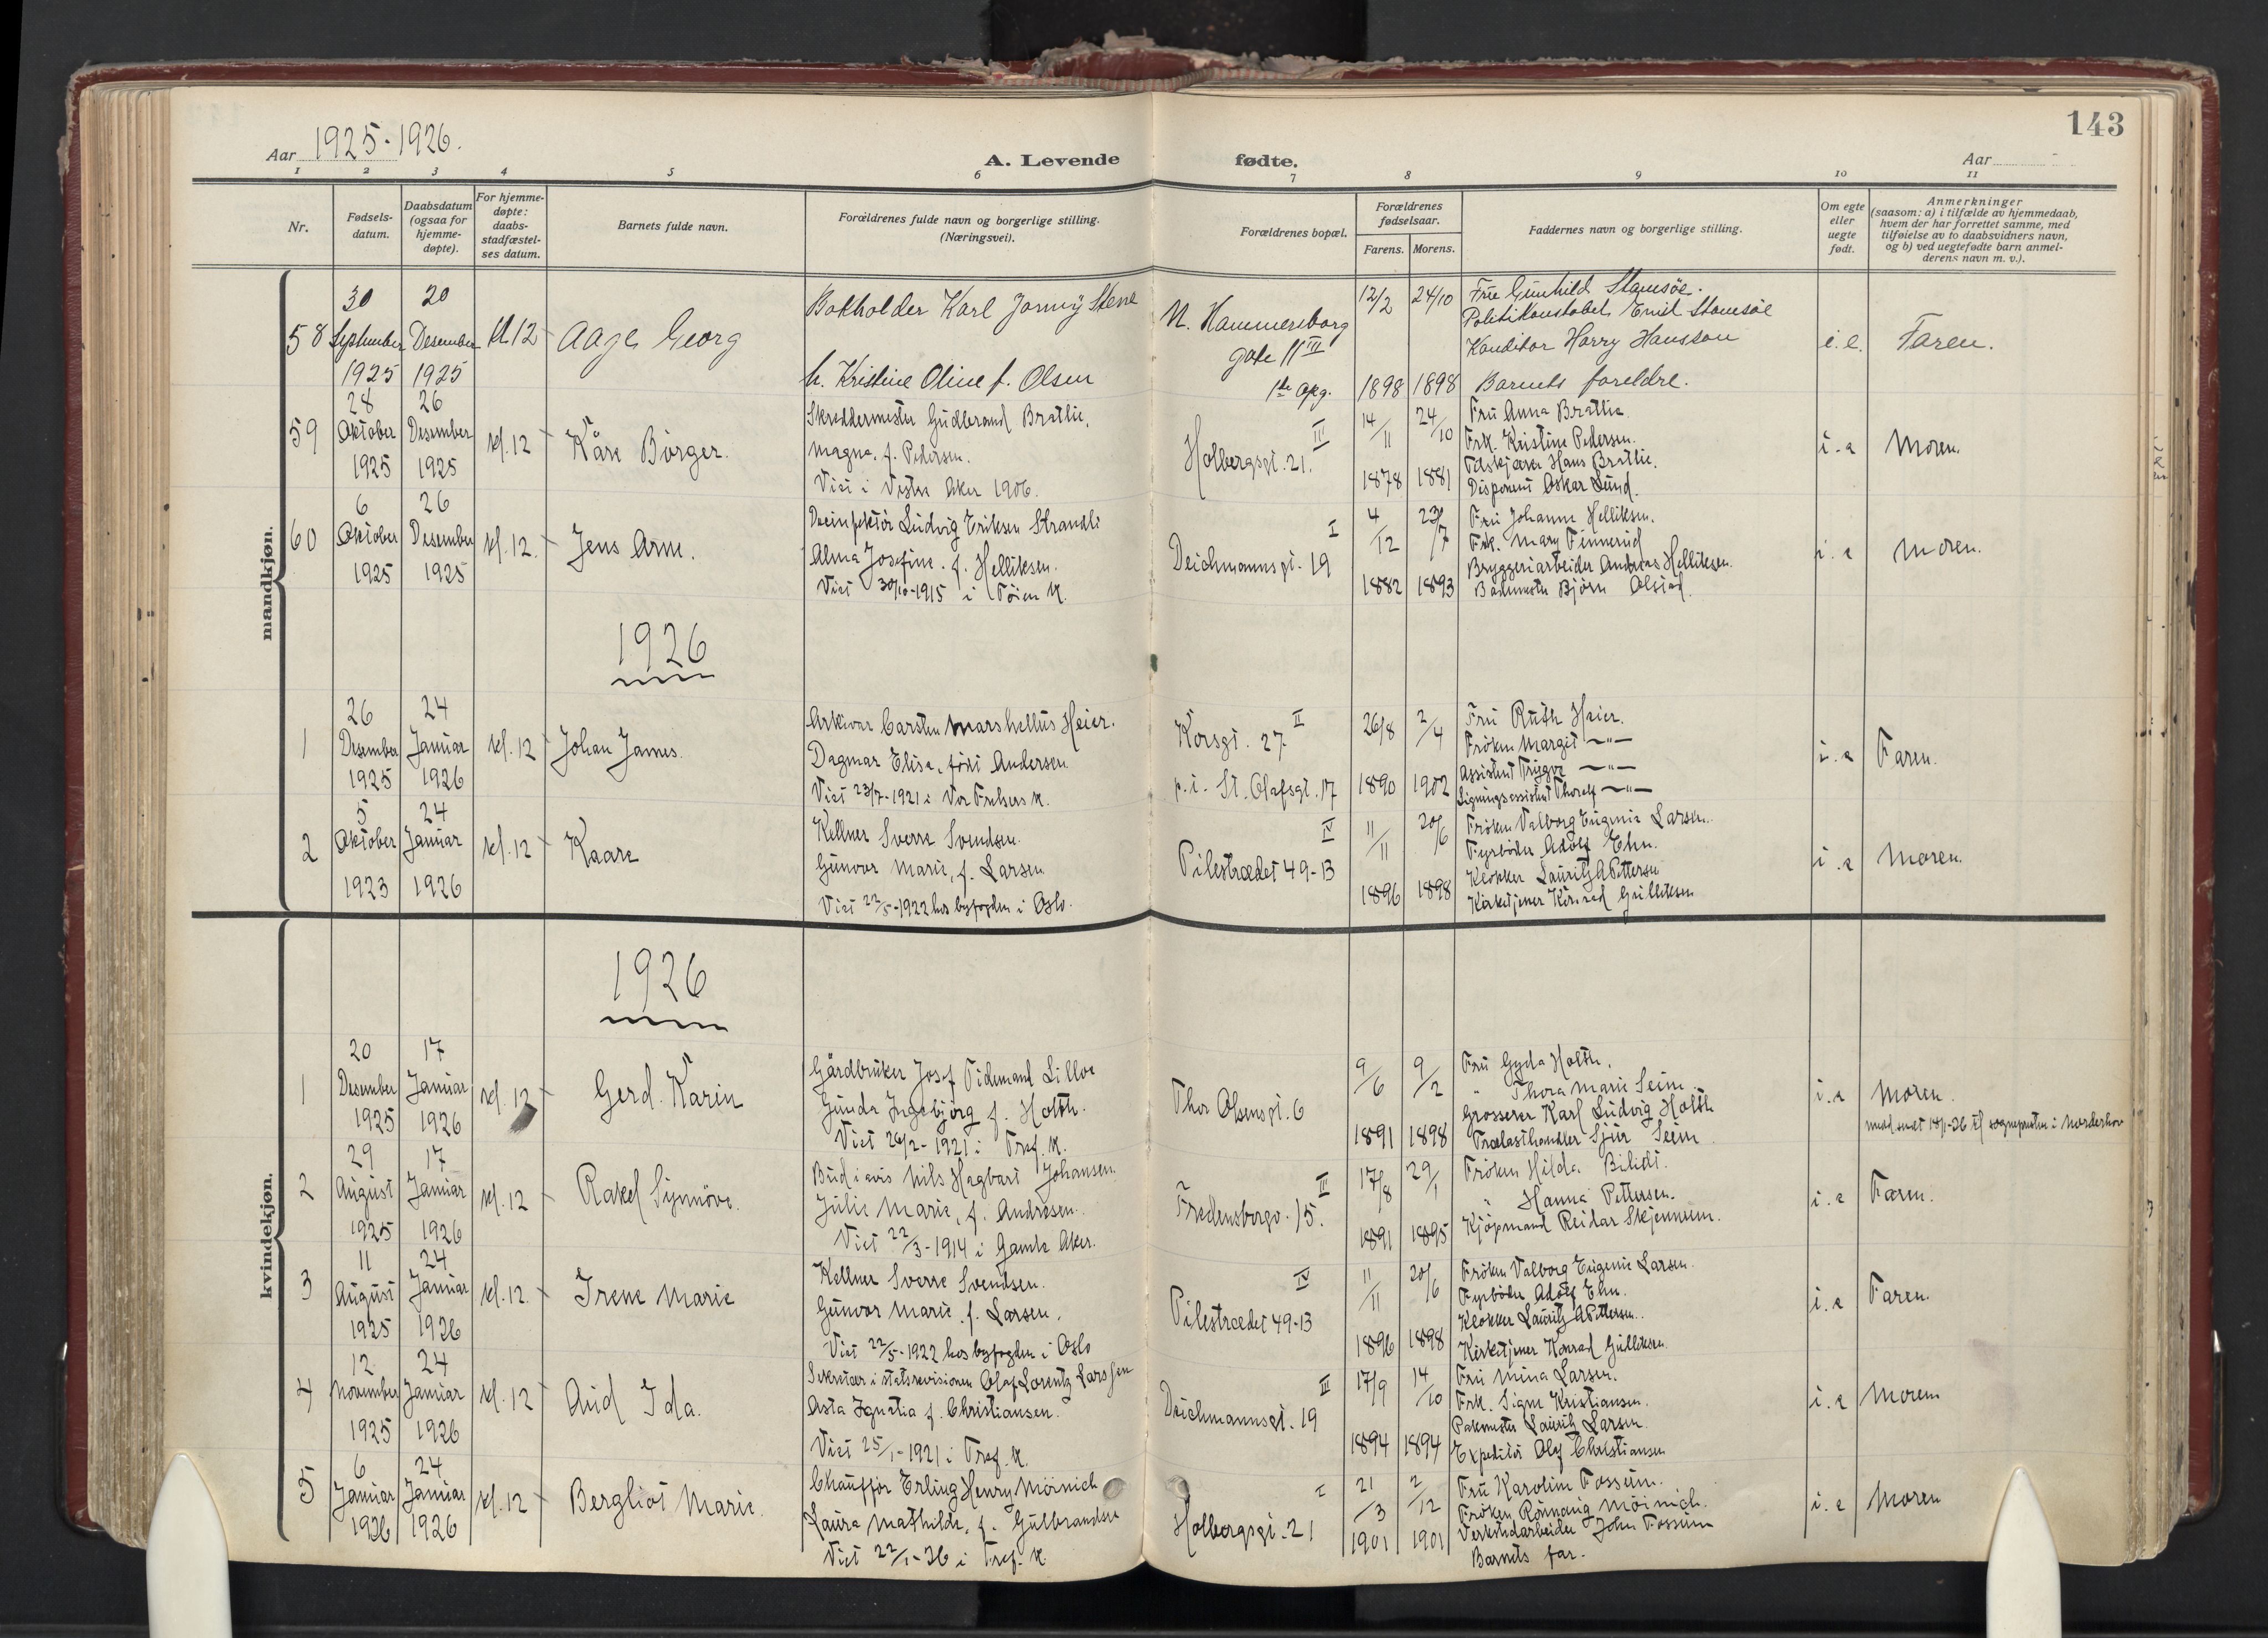 143
Aar 1925-1926.
A. Levende fødte.
Aar
1 2 3 4 5 6 7 8 9 10 11
Nr.
Fødsels-
datum.
Daabsdatum
(ogsaa for
hjemme-
døpte).
For hjemme-
døpte:
daabs-
stadfæstel-
ses datum.
Barnets fulde navn.
Forældrenes fulde navn og borgerlige stilling.
(Næringsvei).
Forældrenes bopæl.
Forældrenes
fødselsaar.
Farens. Morens.
Faddernes navn og borgerlige stilling.
Om egte
eller
uegte
født.
Anmerkninger
(saasom: a) i tilfælde av hjemmedaab,
hvem der har forrettet samme, med
tilføielse av to daabsvidners navn,
og b) ved uegtefødte barn anmel-
derens navn m. v.).
mandkjøn.
58
30
September
1925
20
Desember
1925
kl 12
Aage Georg
Bokholder Karl Jonny Stene
h. Kristine Oline f. Olsen
N. Hammersborg
gate 11 III
1ste opg.
12/2
1898
24/10
1898
Frue Gunhild Stamsöe.
Politikonstabel Emil Stamsöe
Konditor Harry Hansson
Barnets foreldre.
i. e.
Faren.
59
28
Oktober
1925
26
Desember
1925
kl. 12
Kåre Börger.
Skreddermester Gudbrand Bratlie,
Magna. f. Pedersen.
Viet i Vestre Aker 1906.
III
Holbergsgt. 21.
14/11
1878
24/10
1881
Fru Anna Bratlie.
Frk. Kristine Pedersen.
Tilskjærer Hans Bratlie.
Disponent Oskar Lund.
i. e
Moren.
60
6
Oktober
1925
26
Desember
1925
kl. 12.
Jens Arne.
Desinfektör Ludvig Eriksen Strandli
Alma Josefine. f. Helliksen.
Viet 30/10-1915 i Töien K.
I
Deichmannsgt. 19
4/12
1882
23/7
1893
Fru Johanne Helliksen.
Frk. Mary Finnerud
Bryggeriarbeider Andreas Helliksen.
Bademester Björn Olstad.
i. e
Moren.
1926
1
26
Desember
1925
24
Januar
1926
kl. 12
Johan James.
Arkivar Carsten Marshellus Heier.
Dagmar Elise, födt Andersen
Viet 23/7-1921 i Vor Frelsers K.
Korsgt. 27. II
p. t. St. Olafsgt. 17
26/8
1890
2/4
1902
Fru Ruth Heier.
Fröken Margit —"—
Assistent Trygve —"—
Ligningsassistent Thoralf —"—
i. e
Faren.
2
5
Oktober
1923
24
Januar
1926
kl. 12
Kaare
Kellner Sverre Svendsen.
Gunvor Marie, f. Larsen
Viet 22/5-1922 hos byfogden i Oslo.
IV
Pilestrædet 49-13
11/11
1896
20/6
1898
Fröken Valborg Eugenie Larsen.
Fyrböder Adolf Ehn.
Klokker Lauritz A Pettersen
Kirketjener Konrad Gulliksen
i. e
Moren.
kvindekjøn.
1926
1
20
Desember
1925
17
Januar
1926
kl. 12
Gerd. Karin
Gårdbruker Josef Tidemand Lilloe
Gunda Ingebjörg f. Holth.
Viet 26/2-1921 i Tref. K.
Thor Olsensgt. 6
9/6
1891
9/2
1898
Fru Gyda Holth.
" Thora Marie Seim
Grosserer Karl Ludvig Holth
Trælasthandler Sjur Seim
i. e
Moren.
medd. sendt 18/1-26 til sogneprsten i Norderhov
2
29
August
1925
17
Januar
1926
kl. 12
Rakel Synnöve.
Bud i avis Nils Hagbart Johansen.
Julie Marie, f. Andresen.
Viet 22/3-1914 i Gamle Aker.
II
Fredensborgv. 15.
17/8
1891
29/1
1895
Fröken Hilda Bilidt.
" Hanna Pettersen.
Kjöpmand Reidar Skjennum.
i. e
Faren.
3
11
August
1925
24
Januar
1926
kl. 12.
Irene Marie
Kellner Sverre Svendsen.
Gunvor Marie. f. Larsen.
Viet 22/5-1922 hos byfogden i Oslo
IV
Pilestrædet 49-13
11/11
1896
20/6
1898
Fröken Valborg Eugenie Larsen.
Fyrböder Adolf Ehn.
Klokker Lauritz A Pettersen.
Kirketjener Konrad Gulliksen
i. e
Faren.
4
12
November
1925
24
Januar
1926
kl. 12
Aud Ida.
Sekretær i statsrevisionen Olaf Lorentz Larssen
Asta Ignatia f. Christiansen.
Viet 25/1-1921 i Tref. K.
III
Deichmannsgt. 19
17/9
1894
14/10
1894
Fru Mina Larsen.
Frk. Signe Kristiansen.
Pakmester Lauritz Larsen.
Expeditör Olaf Christiansen
i. e
Moren
5
6
Januar
1926
24
Januar
1926
kl. 12
Bergliot Marie.
Chauffør Erling Henry Möinich
Laura Mathilde, f. Gulbrandsen
Viet 22/1-26 i Tref. K
I
Holbergsgt. 21
21/3
1901
2/12
1901
Fru Karoline Fossum.
Fröken Rönnaug Möinich.
Verkstedarbeider John Fossum
Barnets far.
i. e
Moren